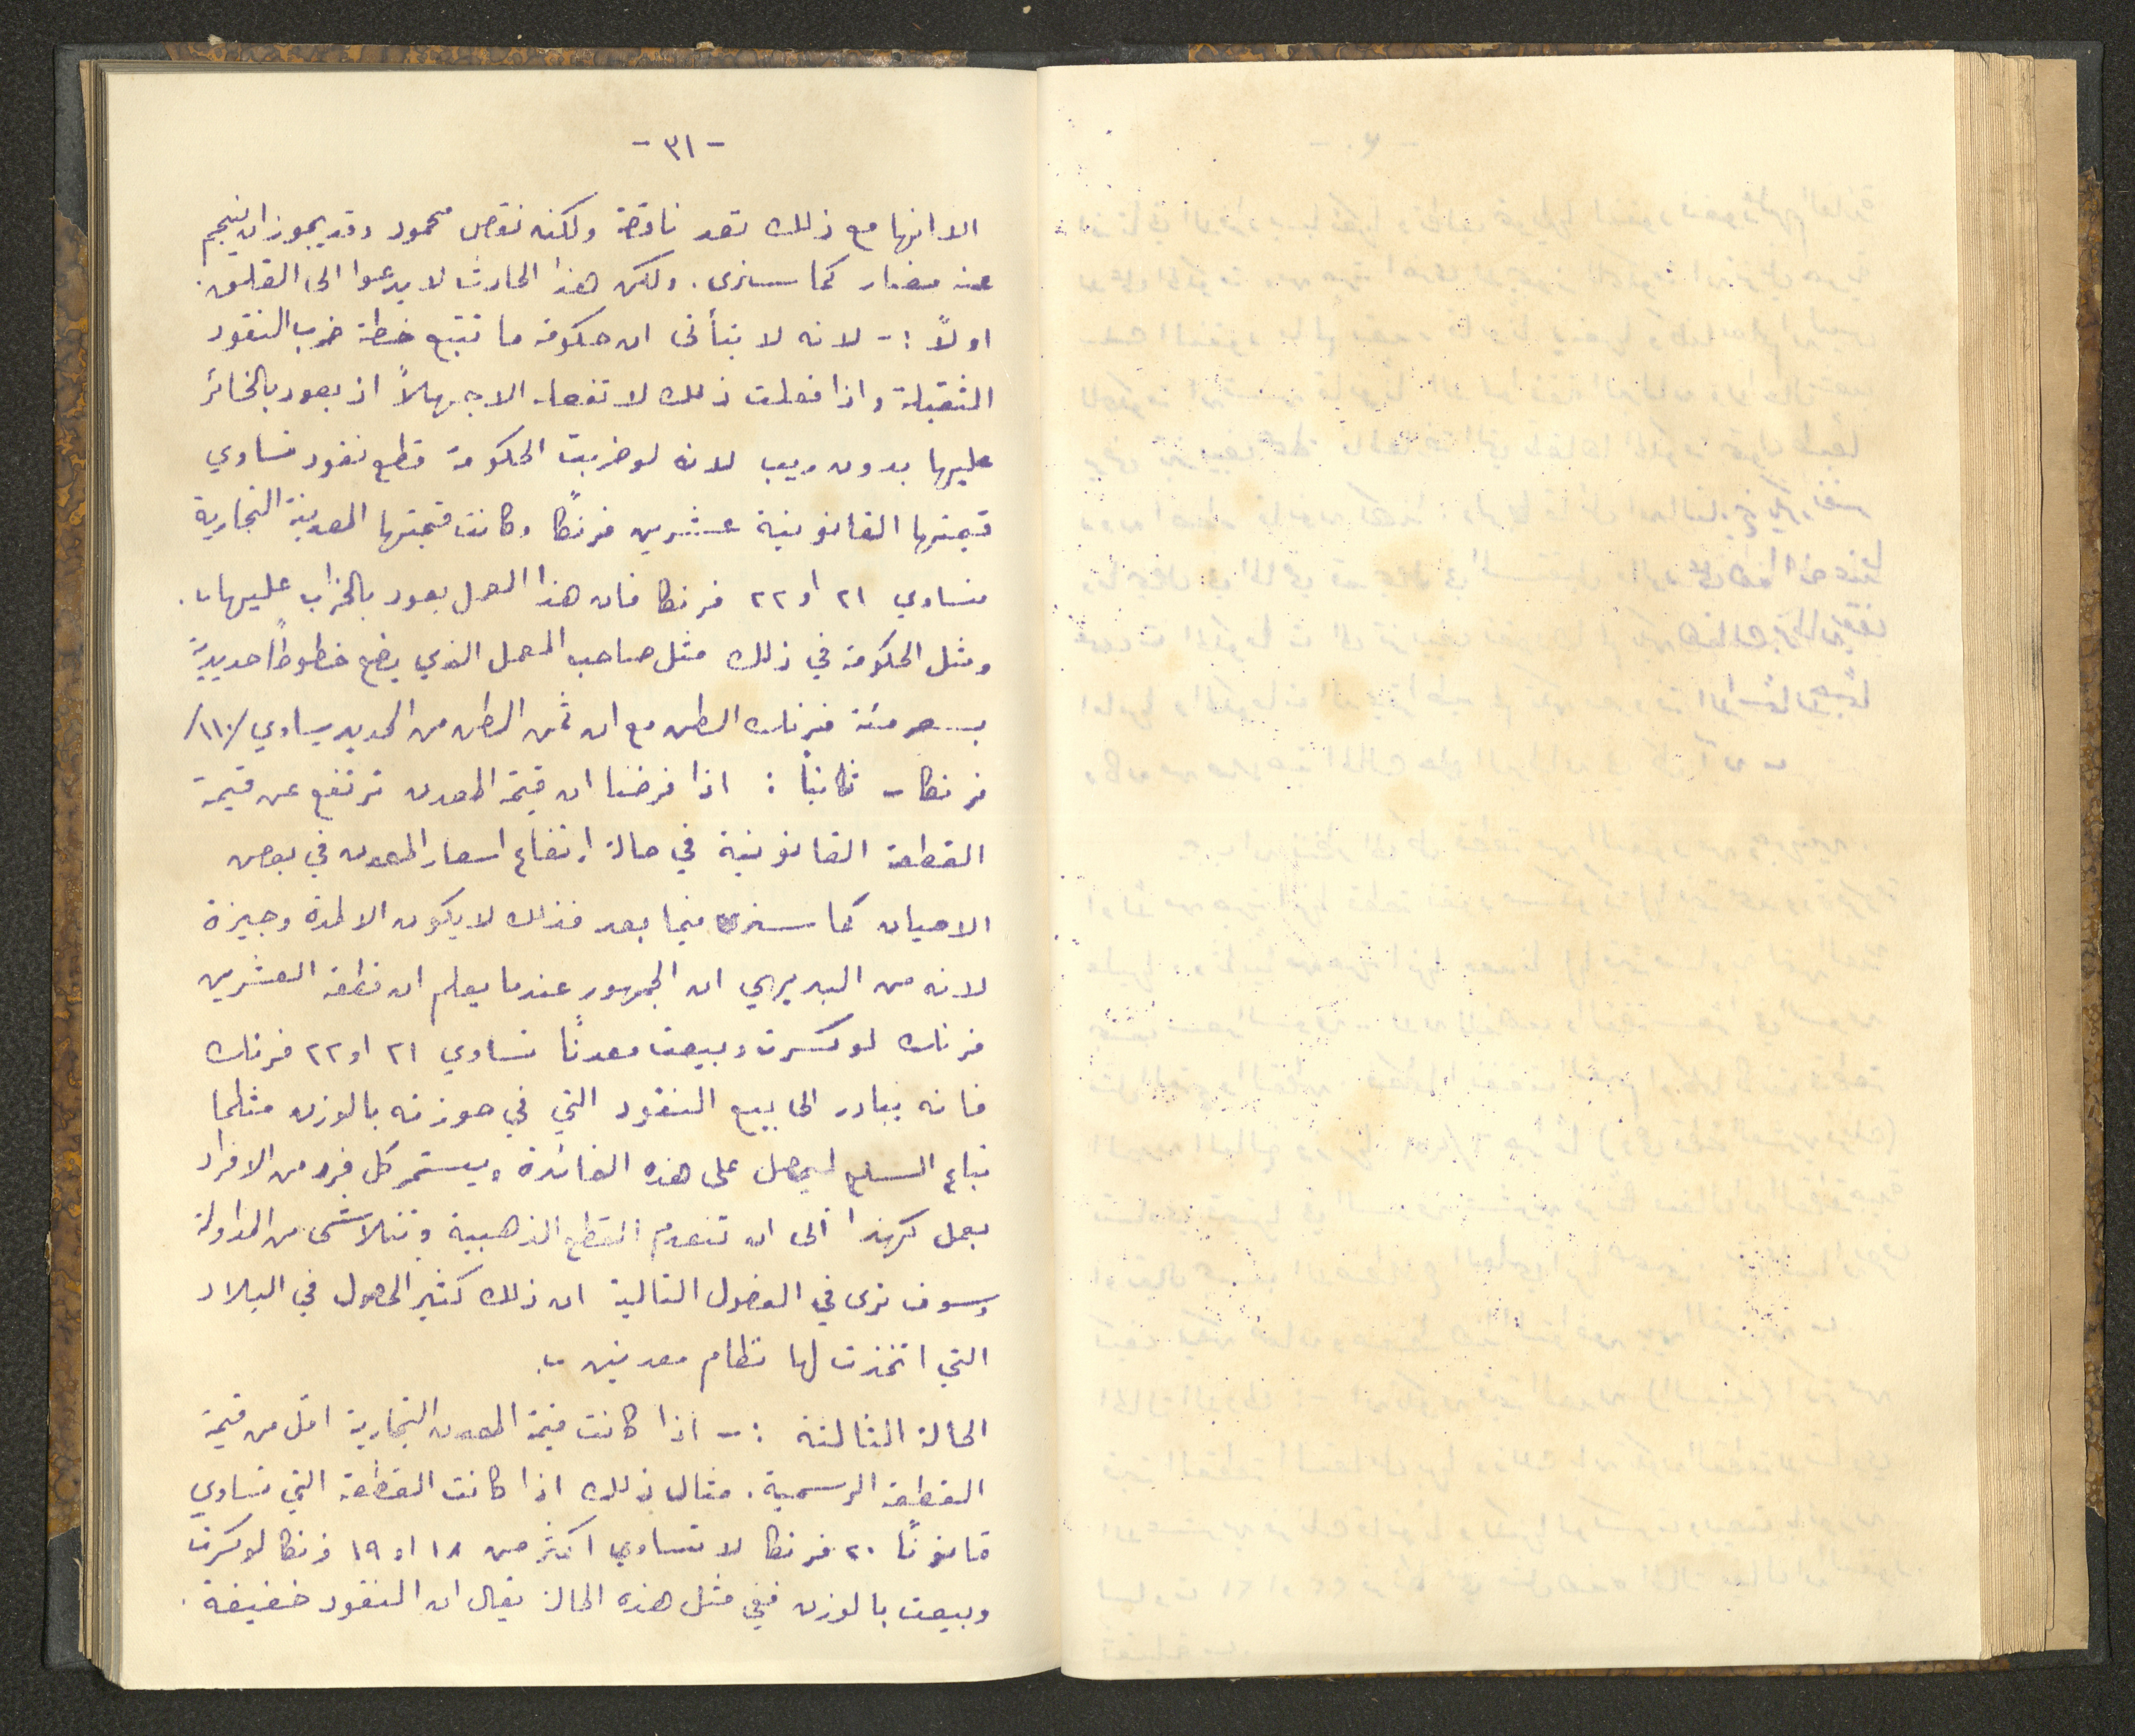 -٣١-
الا انها مع ذلك تعد ناقصة ولكنه نقص محمود وقد يجوز ان ينجم
عنه مضار كما سنرى. ولكن هذا الحادث لا يدعوا الى القلق.
اولاً :- لانه لا يتأتى ان حكومة ما تتبع خطة ضرب النقود
الثقيلة واذا فعلت ذلك لا تفعله الا جهلاً اذ يعود بالخسائر
عليها بدون ريب لانه لو ضربت الحكومة قطع نقود تساوي
قيمتها القانونية عشرين فرنكًا وكانت قيمتها المعدنية التجارية
تساوي ٢١ او ٢٢ فرنكا فان هذا العمل يعود بالخراب عليها.
ومثل الحكومة في ذلك مثل صاحب المعمل الذي يضع خطوطًا حديدية
بسعر مئة فرنك الطن مع ان ثمن الطن من الحديد يساوي /١١٠/
فرنكا - ثانياً : اذا فرضنا ان قيمة المعدن ترتفع عن قيمة
القطعة القانونية في حالة ارتفاع اسعار المعدن في بعض
الاحيان كما سنرى فيما بعد فذلك لا يكون الا لمدة وجيزة
لانه من البديهي ان الجمهور عندما يعلم ان قطعة العشرين
فرنك لو كسرت وبيعت معدنًا تساوي ٢١ او ٢٢ فرنك
فانه يبادر الى بيع النقود التي في حوزته بالوزن مثلما
تباع السلع ليحصل على هذه الفائدة ويستمر كل فرد من الافراد
بعمل كهذا الى ان تنعدم القطع الذهبية وتتلاشى من المداولة
وسوف نرى في الفصول التالية ان ذلك كثير الحصول في البلاد
التي اتخذت لها نظام معدنين .
الحالة الثالثة :- اذا كانت قيمة المعدن التجارية اقل من قيمة
القطعة الرسمية. مثال ذلك اذا كانت القطعة التي تساوي
قانونًا ٢٠ فرنكا لا تساوي اكثر من ١٨ او ١٩ فرنكا لو كسرت
وبيعت بالوزن ففي مثل هذه الحالة يقال ان النقود خفيفة .